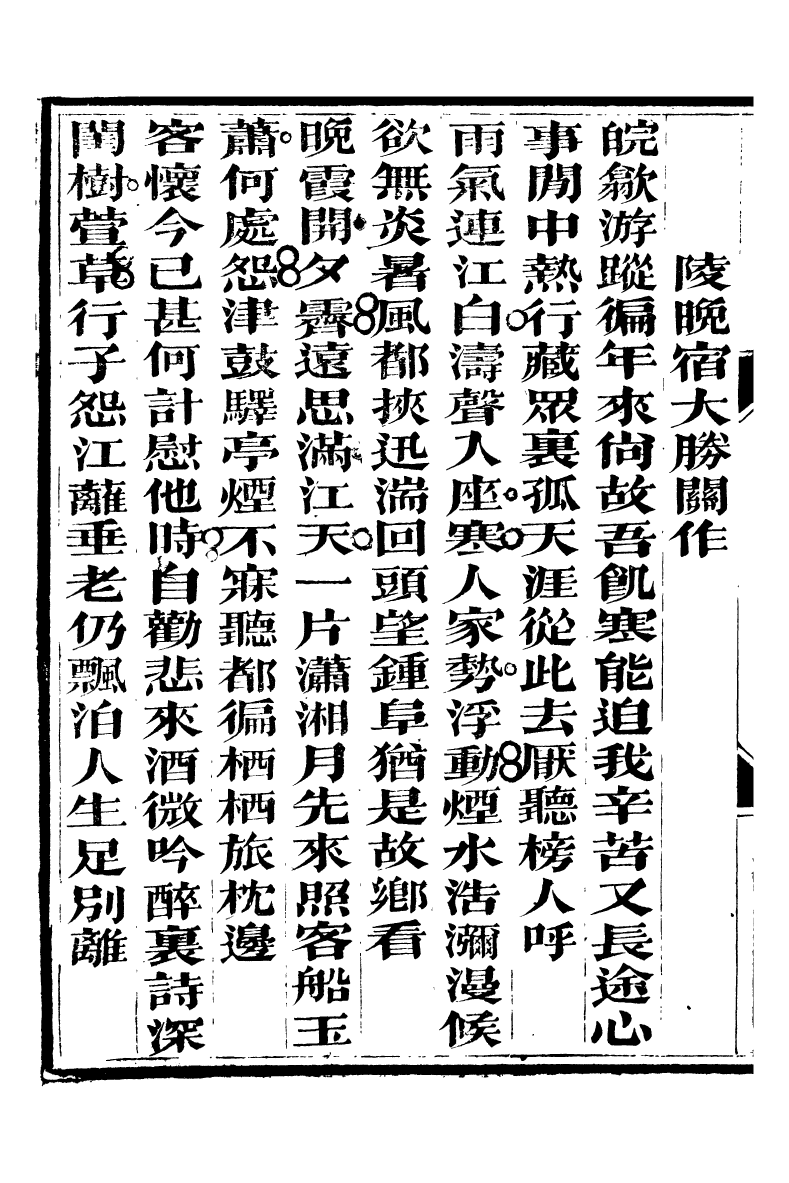 陵晚宿大勝關作
皖歙游蹤徧年來尙故吾飢寒能迫我辛苦又長途心
事閒中熱行藏眾裏孤天涯從此去厭聽榜人呼
雨氣連江白濤聲入座寒人家勢浮動煙水浩瀰漫候
欲無炎暑風都挾迅湍回頭望鍾阜猶是故鄉看
晚霞開夕霽遠思滿江天一片瀟湘月先來照客船玉
蕭何處怨津鼓驛亭煙不寐聽都徧栖栖旅枕邊
客懷今已甚何計慰他時自勸悲來酒微吟醉裏詩深
閨樹萱草行子怨江蘺垂老仍飄泊人生足別離